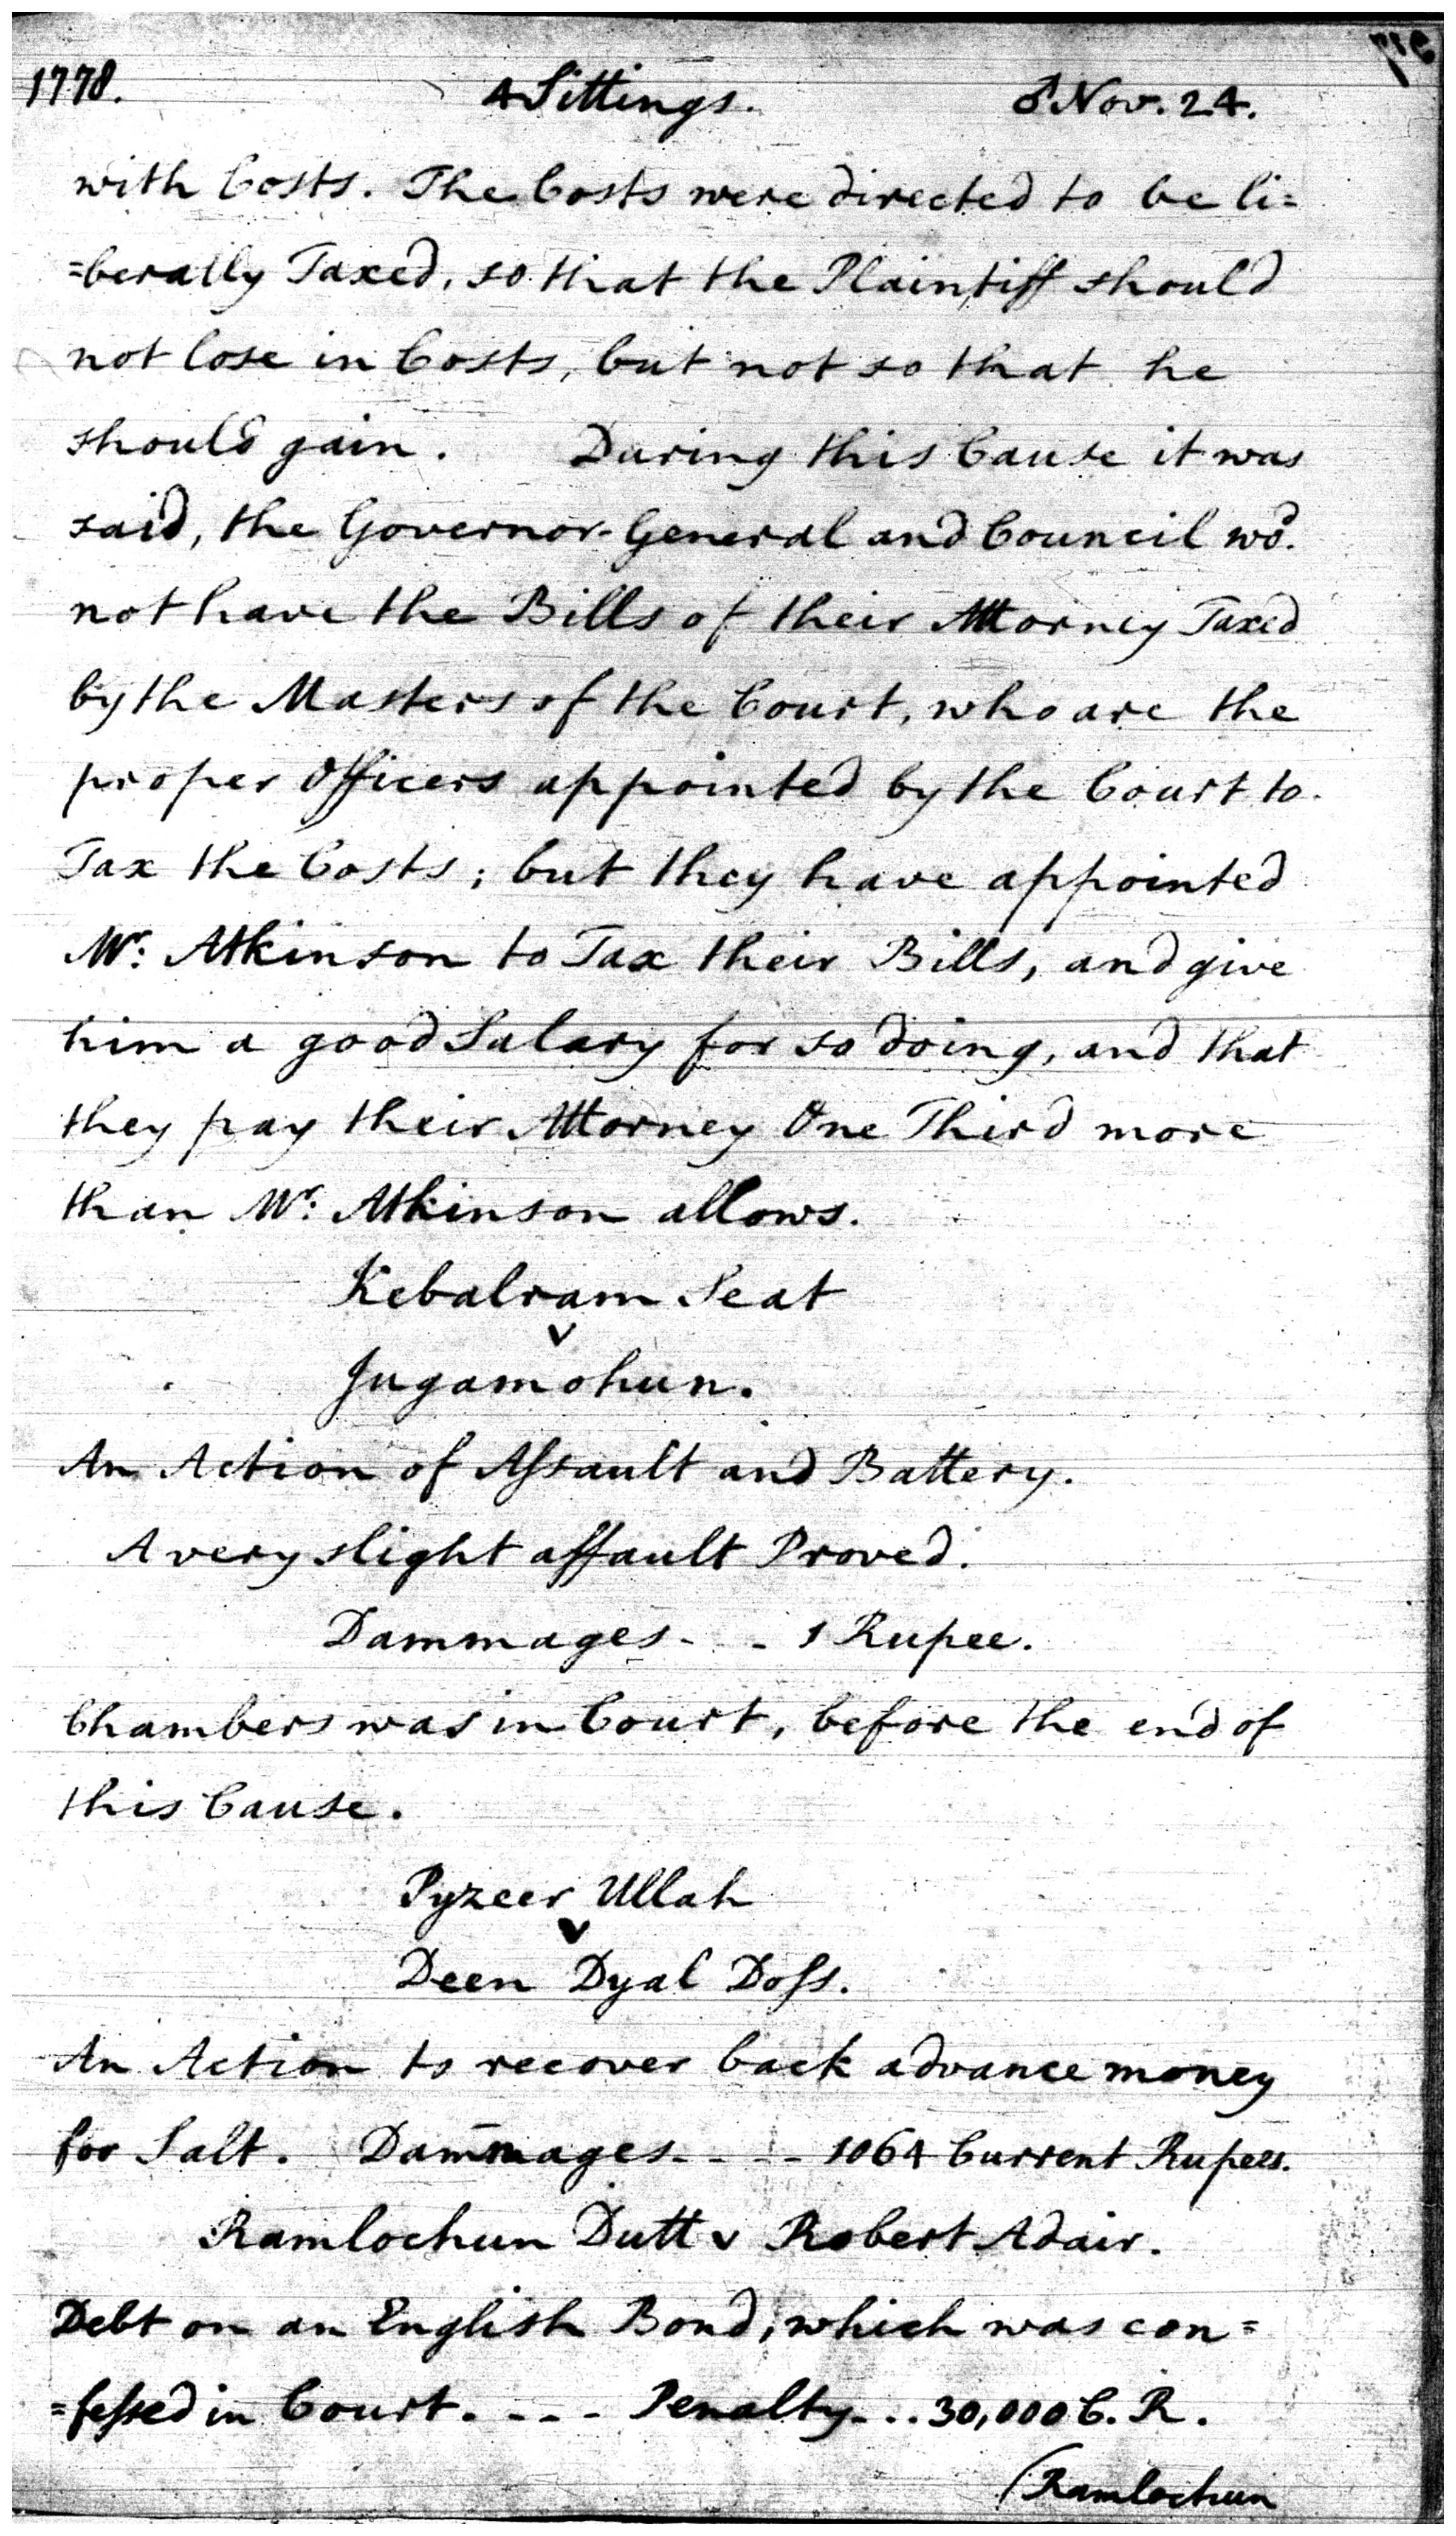 1778. 4 Sittings. ♂ Nov. 24.
with Costs. The Costs were directed to be li=
=berally Taxed, so that the Plaintiff should
not lose in Costs, but not so that he
should gain. During this Cause it was
said, the Governor-General and Council wd.
not have the Bills of their Attorney Taxed
by the Masters of the Court, who are the
proper Officers appointed by the Court to
Tax the Costs; but they have appointed
Mr. Atkinson to Tax their Bills, and give
him a good Salary for so doing, and that
they pay their Attorney One Third more
than Mr. Atkinson allows.
Kebalram Seat
v
Jugamohun.
An Action of Aſsault and Battery.
A very slight aſſault Proved.
Dammages - - 1 Rupee.
Chambers was in Court, before the end of
this Cause.
Pyzeer Ullah
v
Deen Dyal Doſs.
An Action to recover back advance money
for Salt. Dammages - - - - 1064 Current Rupees.
Ramlochun Dutt v Robert Adair.
Debt on an English Bond, which was con=
=feſsed in Court. - - - Penalty - . . 30,000 C. R.
(Ramlochun